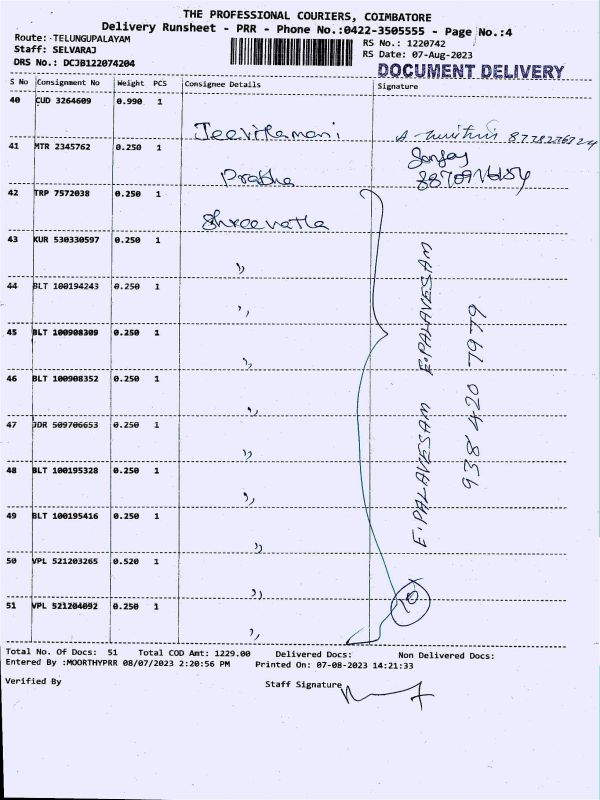 THE PROFESSIONAL COURIERS, COIMBATORE
Delivery Runsheet - PRR - Phone No.:0422-3505555 - Page No.:4
Route: TELUNGUPALAYAM
Staff: SELVARAJ
DRS No.: DCJB122074204
RS No.: 1220742
RS Date: 07-Aug-2023
DOCUMENT DELIVERY
S No Consignment No Weight PCS Consignee Details Signature
40 CUD 3264609 0.990 1
Jeevithamani
41 MTR 2345762 0.250 1
Sanjay
Prabha
42 TRP 7572038 0.250 1
Shreevatha
43 KUR 530330597 0.250 1
"
44 BLT 100194243 0.250 1
"
45 BLT 100908309 0.250 1
"
46 BLT 100908352 0.250 1
"
47 JDR 509706653 0.250 1
"
48 BLT 100195328 0.250 1
"
49 BLT 100195416 0.250 1
"
50 VPL 521203265 0.520 1
"
51 VPL 521204092 0.250 1
"
E.PALAVESAM E.PALAVESAM
938 420 7979
10
Total No. Of Docs: 51 Total COD Amt: 1229.00 Delivered Docs: Non Delivered Docs:
Entered By :MOORTHYPRR 08/07/2023 2:20:56 PM Printed On: 07-08-2023 14:21:33
Verified By Staff Signature